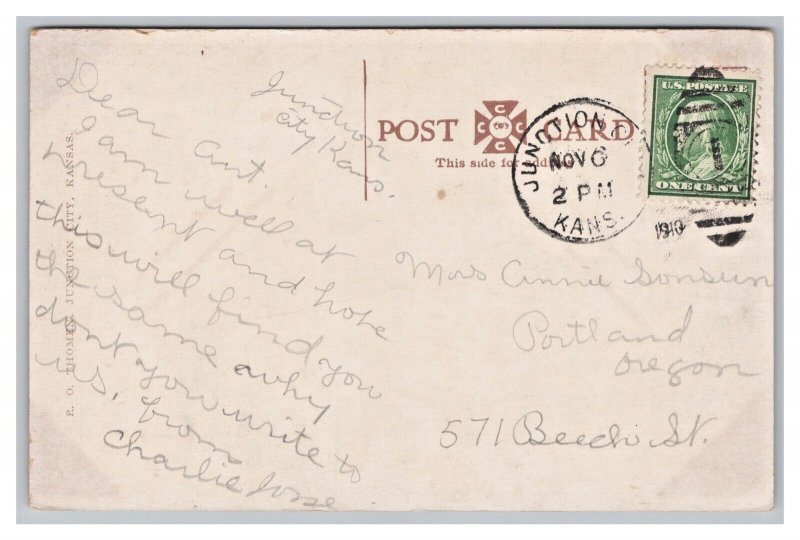 Junction
City Kans.
Dear Ant.
I am well at
present and hope
this will find you
the same why
dont you write to
us, from
Charlie
E. O. THOMEN, JUNCTION CITY, KANSAS.
POST CARD
C C C C
This side for address
JUNCTION
NOV 6
2 PM
KANS.
1910
U.S. POSTAGE
ONE CENT
Mrs Annie
Portland
Oregon
571 Beech St.